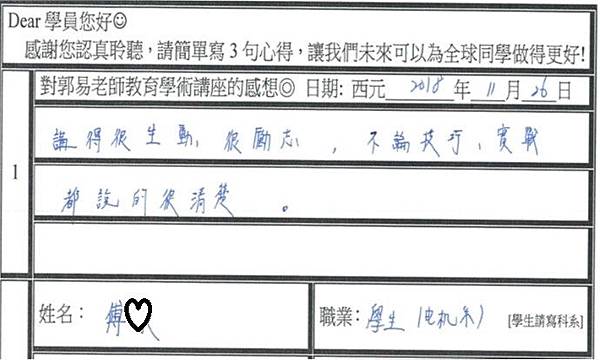 Dear 學員您好☺
感謝您認真聆聽，請簡單寫3句心得，讓我們未來可以為全球同學做得更好!
對郭易老師教育學術講座的感想◎ 日期: 西元 2018 年 11 月 26 日
1
講得很生動、很勵志，不論技巧、實戰
都說的很清楚。
姓名： 傅
職業： 學生(电机系) [學生請寫科系]